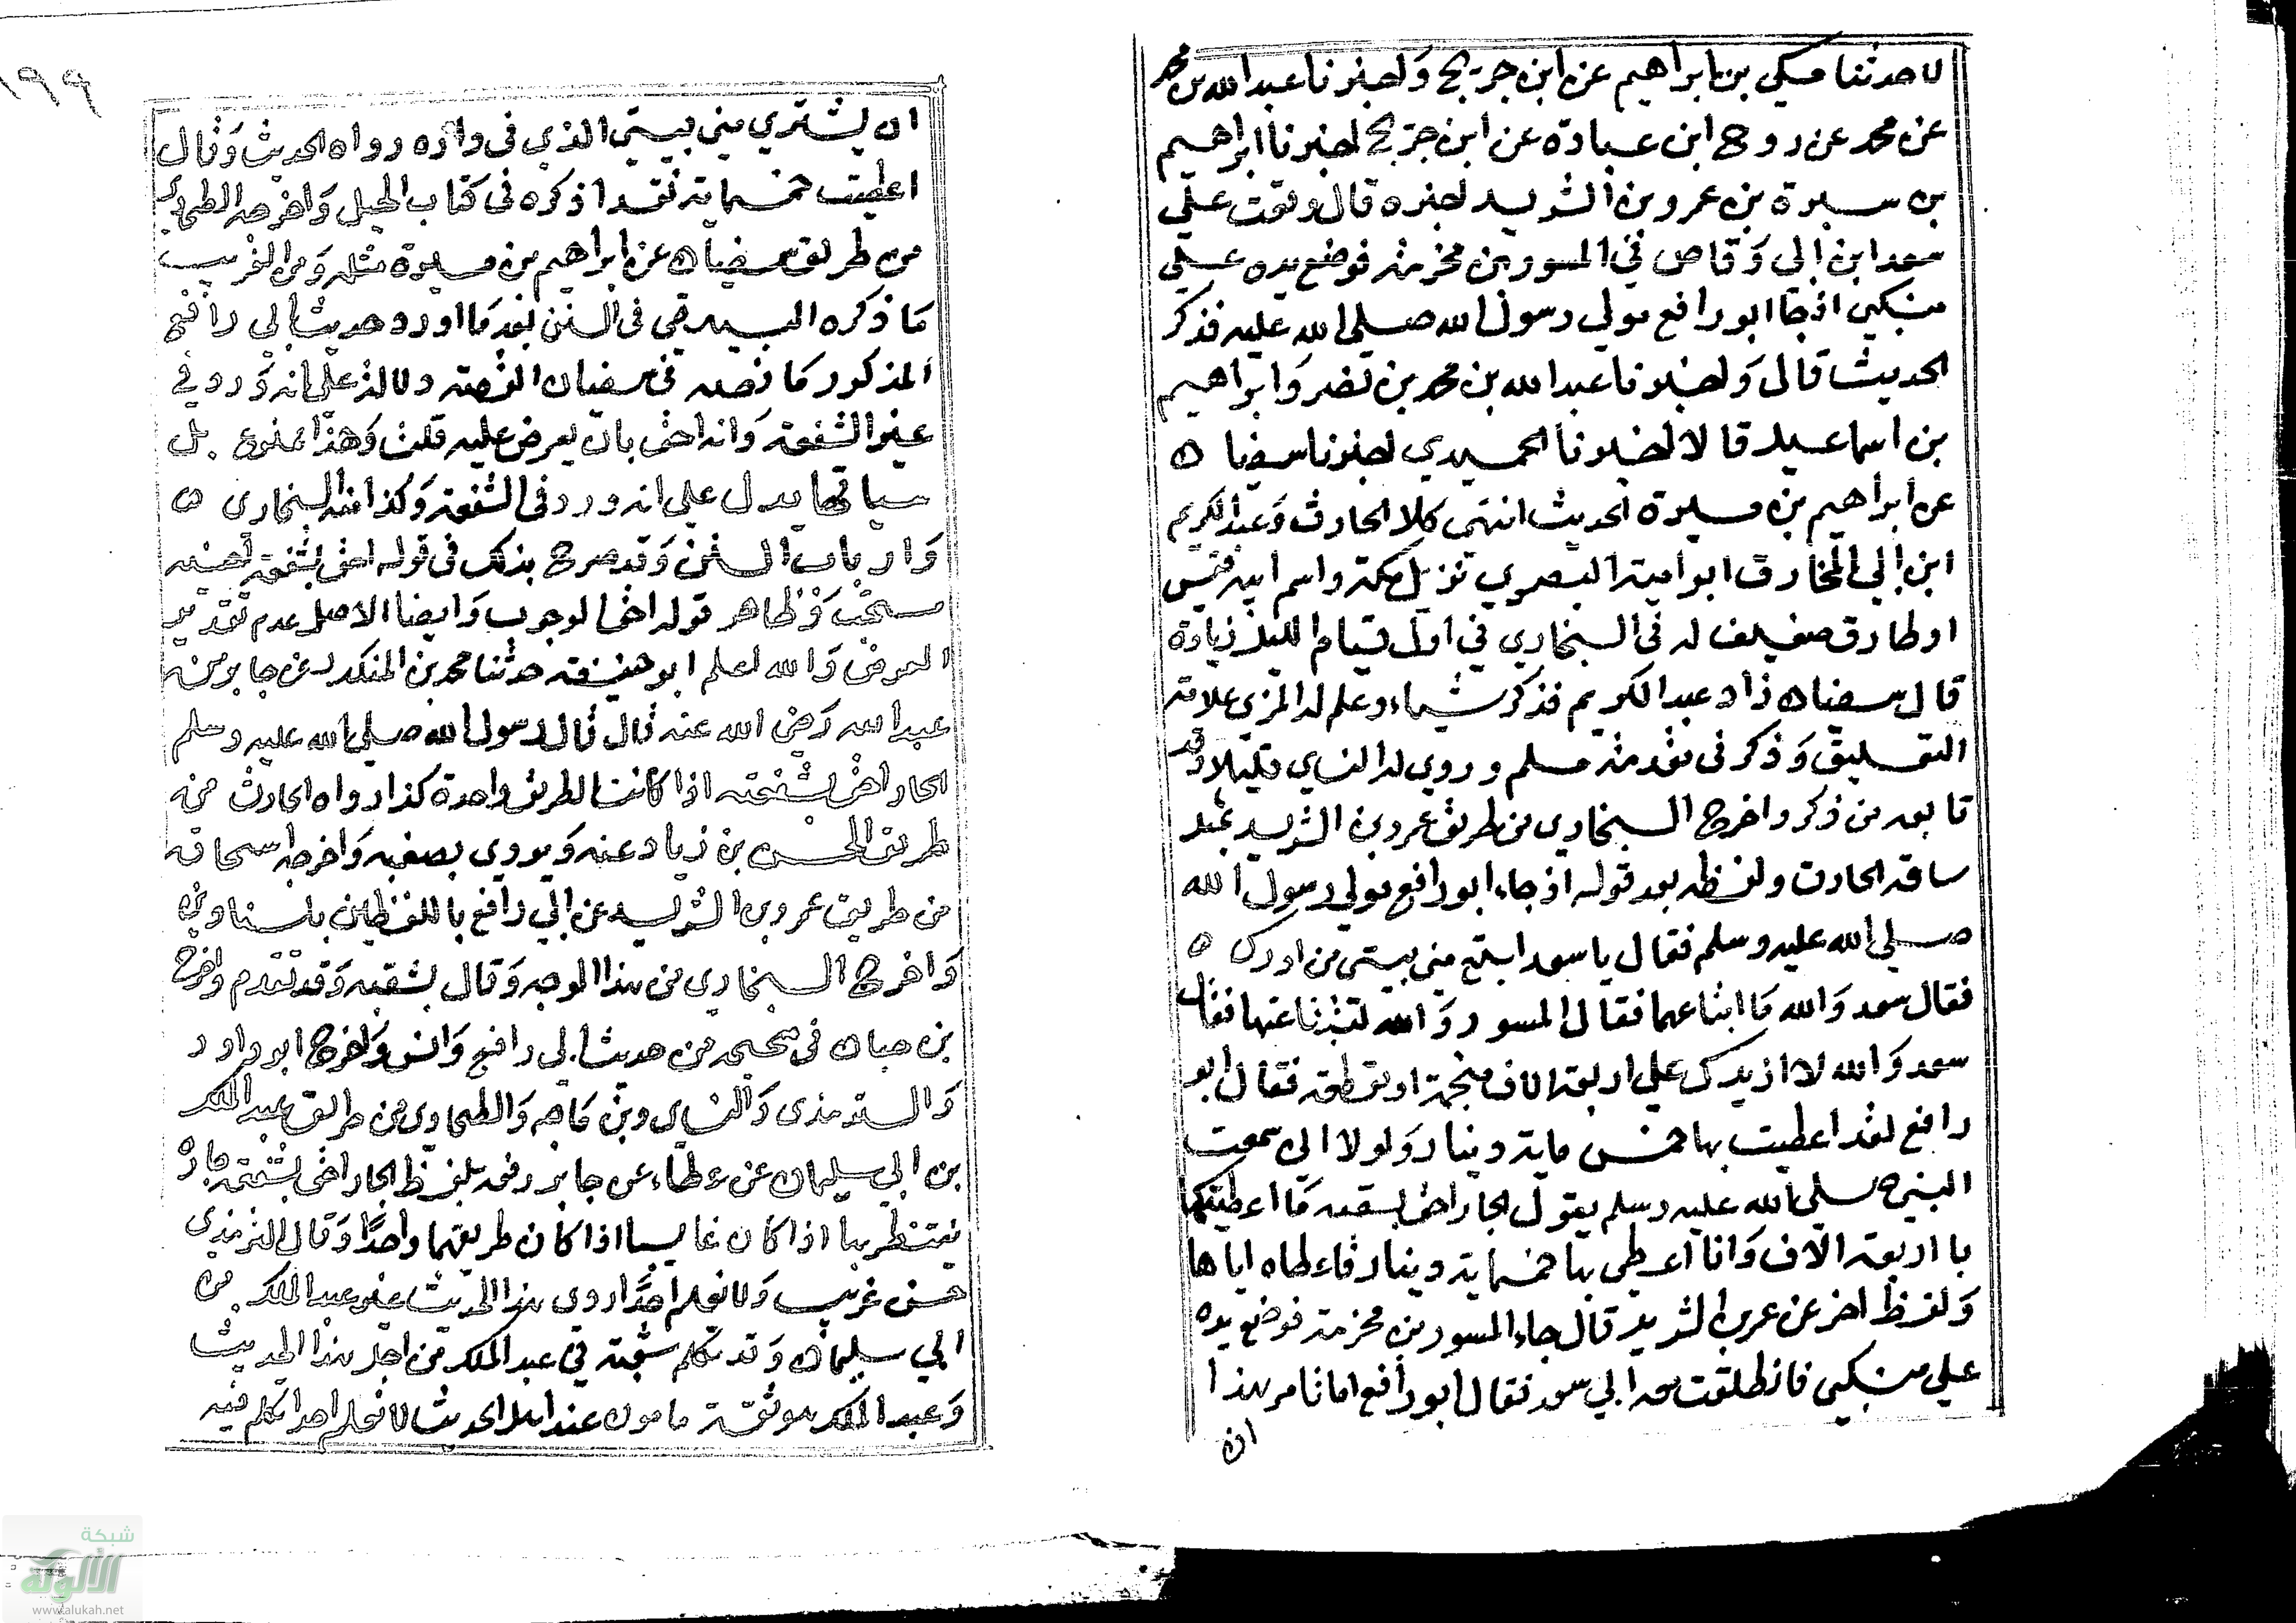 لا حدثنا مكي بن ابراهيم عن ابن جريج وَاخبرنا عبدالله بن محمد
عن محمد عن روح ابن عبادة عن ابن جريج اخبرنا ابراهيم
بن ميسرة بن عمرو بن الشريد اخبره قال وقعت علي
سعد ابن ابي وَقاص في المسور بن مخرمة فوضع يده علي
منكبي اذجا ابو رافع مولي رسول الله صلي الله عليه فذكر
الحديث قال وَاخبرنا عبدالله بن محمد بن نضر وَابراهيم
بن اسماعيل قالا اخبرنا الحميدي اخبرنا سفيان
عن ابراهيم بن ميسرة الحديث انتهي كلا الحارث وَعبدالكريم
ابن ابي المخارق ابو امية البصري نزيل مكة واسم ابيه قيس
او طارق ضعيف له في البخاري في اول قيام الليل زيادة
قال سفيان زاد عبد الكريم فذكر شيا وعلم له المزي علامة
التعليق وَذكر في مقدمة مسلم وروي له النساي قليلا وقد
تابعه من ذكر واخرج البخاري من طريق عمرو بن الشريد بمثل
ساقه الحارث ولفظه بعد قوله اذ جاء ابو رافع مولي رسول الله
صلي الله عليه وسلم فقال يا سعد ابتع مني بيتي من ادرك
فقال سعد وَالله مَا ابتاعهما فقال المسور وَالله لتبتاعنهما فقال
سعد وَالله لا ازيدك علي اربعة الاف منجمة او مقطعة فقال ابو
رافع لقد اعطيت بها خمس ماية دينار وَلولا اني سمعت
النبي صلي الله عليه وسلم يقول الجار احق بسقبه مَا اعطيتكها
با اربعة الاف وَانا اعطي بها خمسماية دينار فاعطاه اياها
وَلفظ اخر عن عمرو بن الشريد قال جاء المسور بن مخرمة فوضع يده
علي منكبي فانطلقت معه الي سعد فقال ابو رافع اما تامر هذا
ان
١٩٩
ان يشتري مني بيتي الذي في داره رواه الحديث وَقال
اعطيت خمسماية نقدا ذكره في كتاب الحيل وَاخرجه الطحاوي
من طريق سفيان عن ابراهيم بن ميسرة مثله وَمن الغريب
مَا ذكره البيهقي في السنن بعد مَا اورد حديث ابي رافع
المذكور مَا نصه في سفيان القصة دلالة علي انه وَرد في
غير الشفعة وَانه احق بان يعرض عليه قلت وَهذا ممنوع بل
سياقها يدل علي انه ورد في الشفعة وَكذا فهم البخاري
وَارباب السنن وَقد صرح بذلك في قوله احق بشفعة اخيه
مستحب وَظاهر قوله احق الوجوب وَايضا الاصل عدم تقدير
العرض وَالله اعلم ابو حنيفة حدثنا محمد بن المنكدر عن جابر بن
عبدالله رَضي الله عنه قال قال رسول الله صلي الله عليه وسلم
الجار احق بشفعته اذا كانت الطريق واحدة كذا رواه الحارث من
طريق الحسن بن زياد عنه وَيروي بصقبه وَاخرجه اسحاق
من طريق عمرو بن الشريد عن ابي رافع باللفظين باسنادين
وَاخرج البخاري من هذا الوجه وَقال بشقبه وَقد تقدم واخرج
بن حبان في صحيحه من حديث ابي رافع وَانس وَاخرج ابو داود
وَالترمذي وَالنساي وبن مَاجه وَالطحاوي من طريق عبدالملك
بن ابي سليمان عن عطاء عن جابر رفعه بلفظ الجار احق بشفعة جاره
ينتظر بها اذا كان غايبا اذا كان طريقهما واحدًا وَقال الترمذي
حسن غريب وَلا نعلم احدًا روي هذا الحديث غير عبدالملك بن
ابي سليمان وَقد تكلم شعبة في عبد الملك من اجل هذا الحديث
وَعبد الملك هو ثقة مامون عند اهل الحديث لا نعلم احدا تكلم فيه
شبكة
الألوكة
www.alukah.net